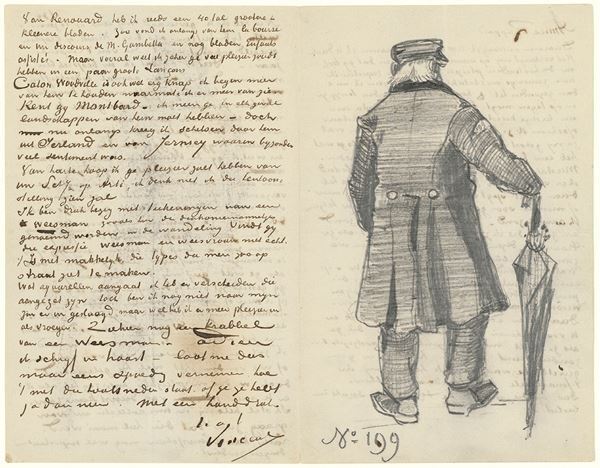 Van Renouard heb ik reeds een 40 tal grootere &
kleinere bladen. Zoo vond ik onlangs van hem la bourse
en un discours de M. Gambetta en nog bladen Enfants
assistés. Maar vooral weet ik zeker ge veel pleizier zoudt
hebben in een paar groote Lançons
Caton Woodville is ook wel erg knap – ik begin meer
van hem te houden naarmate ik er meer van zie
Kent gij Montbard – ik meen ge in elk geval
landschappen van hem moet hebben – doch
nu onlangs kreeg ik schetsen door hem
uit Ierland en van Jersey waarin bijzonder
veel sentiment was.
Van harte hoop ik ge pleizier zult hebben van
Uw op Arti, ik denk met de
stelling zien zal
Ik ben druk bezig met teekeningen van een
weesman zooals hier de diakoniemannetjes
genoemd worden in de wandeling. Vindt gij
die expressie weesman en weesvrouw niet echt.
't Is niet makkelijk die types die men zoo op
straat ziet te maken.
Wat aquarellen aangaat ik heb er verscheiden die
aangezet zijn doch ben ik nog niet naar mijn
zin er in geslaagd maar wel heb ik er meer pleizier in
als vroeger. Ziehier nog een krabbel
van een weesman – adieu
ik schrijf in haast – laat me dus
maar eens spoedig vernemen hoe
't met die houtsneden staat. of ge ze hebt
ja dan neen met een handdruk.
t. à t.
Vincent
No 199